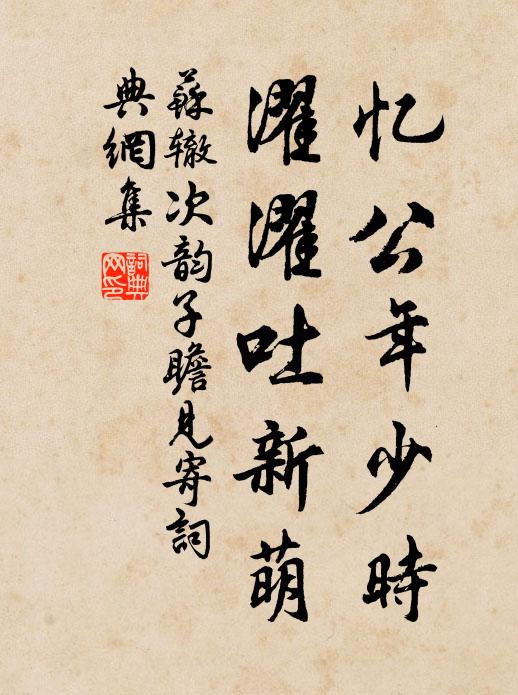 忆公年少時
濯濯吐新萌
蘇辙次韵子瞻見寄詞
典網集
詞典
网印